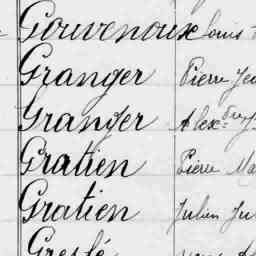 Gouvenoux Louis
Granger Pierre
Granger Alex.dre
Gratien Pierre
Gratien Julien
Greslé